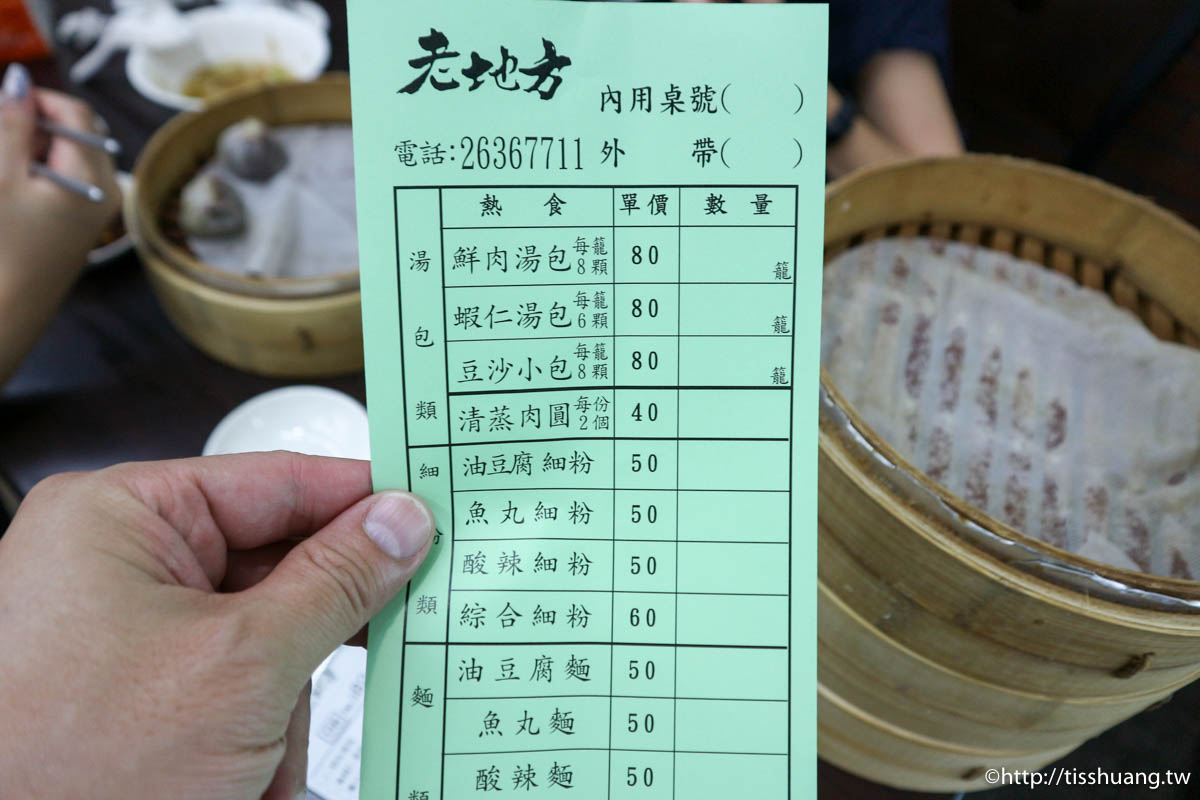 老地方
內用桌號( )
電話:26367711 外 帶( )
熱 食 單價 數 量
湯包類
鮮肉湯包 每籠8顆 80 籠
蝦仁湯包 每籠6顆 80 籠
豆沙小包 每籠8顆 80 籠
清蒸肉圓 每份2個 40
細粉類
油豆腐細粉 50
魚丸細粉 50
酸辣細粉 50
綜合細粉 60
麵類
油豆腐麵 50
魚丸麵 50
酸辣麵 50
©http://tisshuang.tw